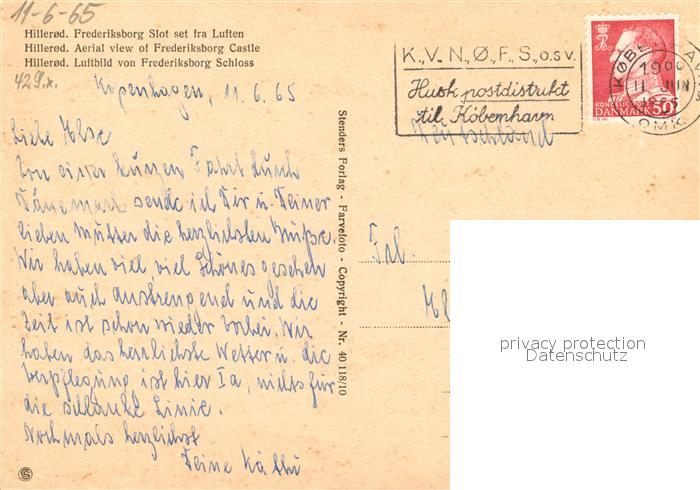 11-6-65
Hillerød. Frederiksborg Slot set fra Luften
Hillerød. Aerial view of Frederiksborg Castle
Hillerød. Luftbild von Frederiksborg Schloss
429.x.
Kopenhagen, 11.6.65
Liebe Else
Von einer kurzen Fahrt durch
Dänemark sende ich Dir u. Deiner
lieben Mutter die herzlichsten Grüße.
Wir haben viel, viel Schönes gesehen
aber auch anstrengend und die
Zeit ist schon wieder vorbei. Wir
haben das herrlichste Wetter u. die
Verpflegung ist hier Ia, nichts für
die schlanke Linie.
Nochmals herzlichst
Deine Käthi
Stenders Forlag - Farvefoto - Copyright - Nr. 40 118/10
K.V.N.Ø.F.S.o.s.v.
Husk postdistrikt
til København
Deutschland
DANMARK 50
11 JUN
1965
OMK
Frl.
privacy protection
Datenschutz